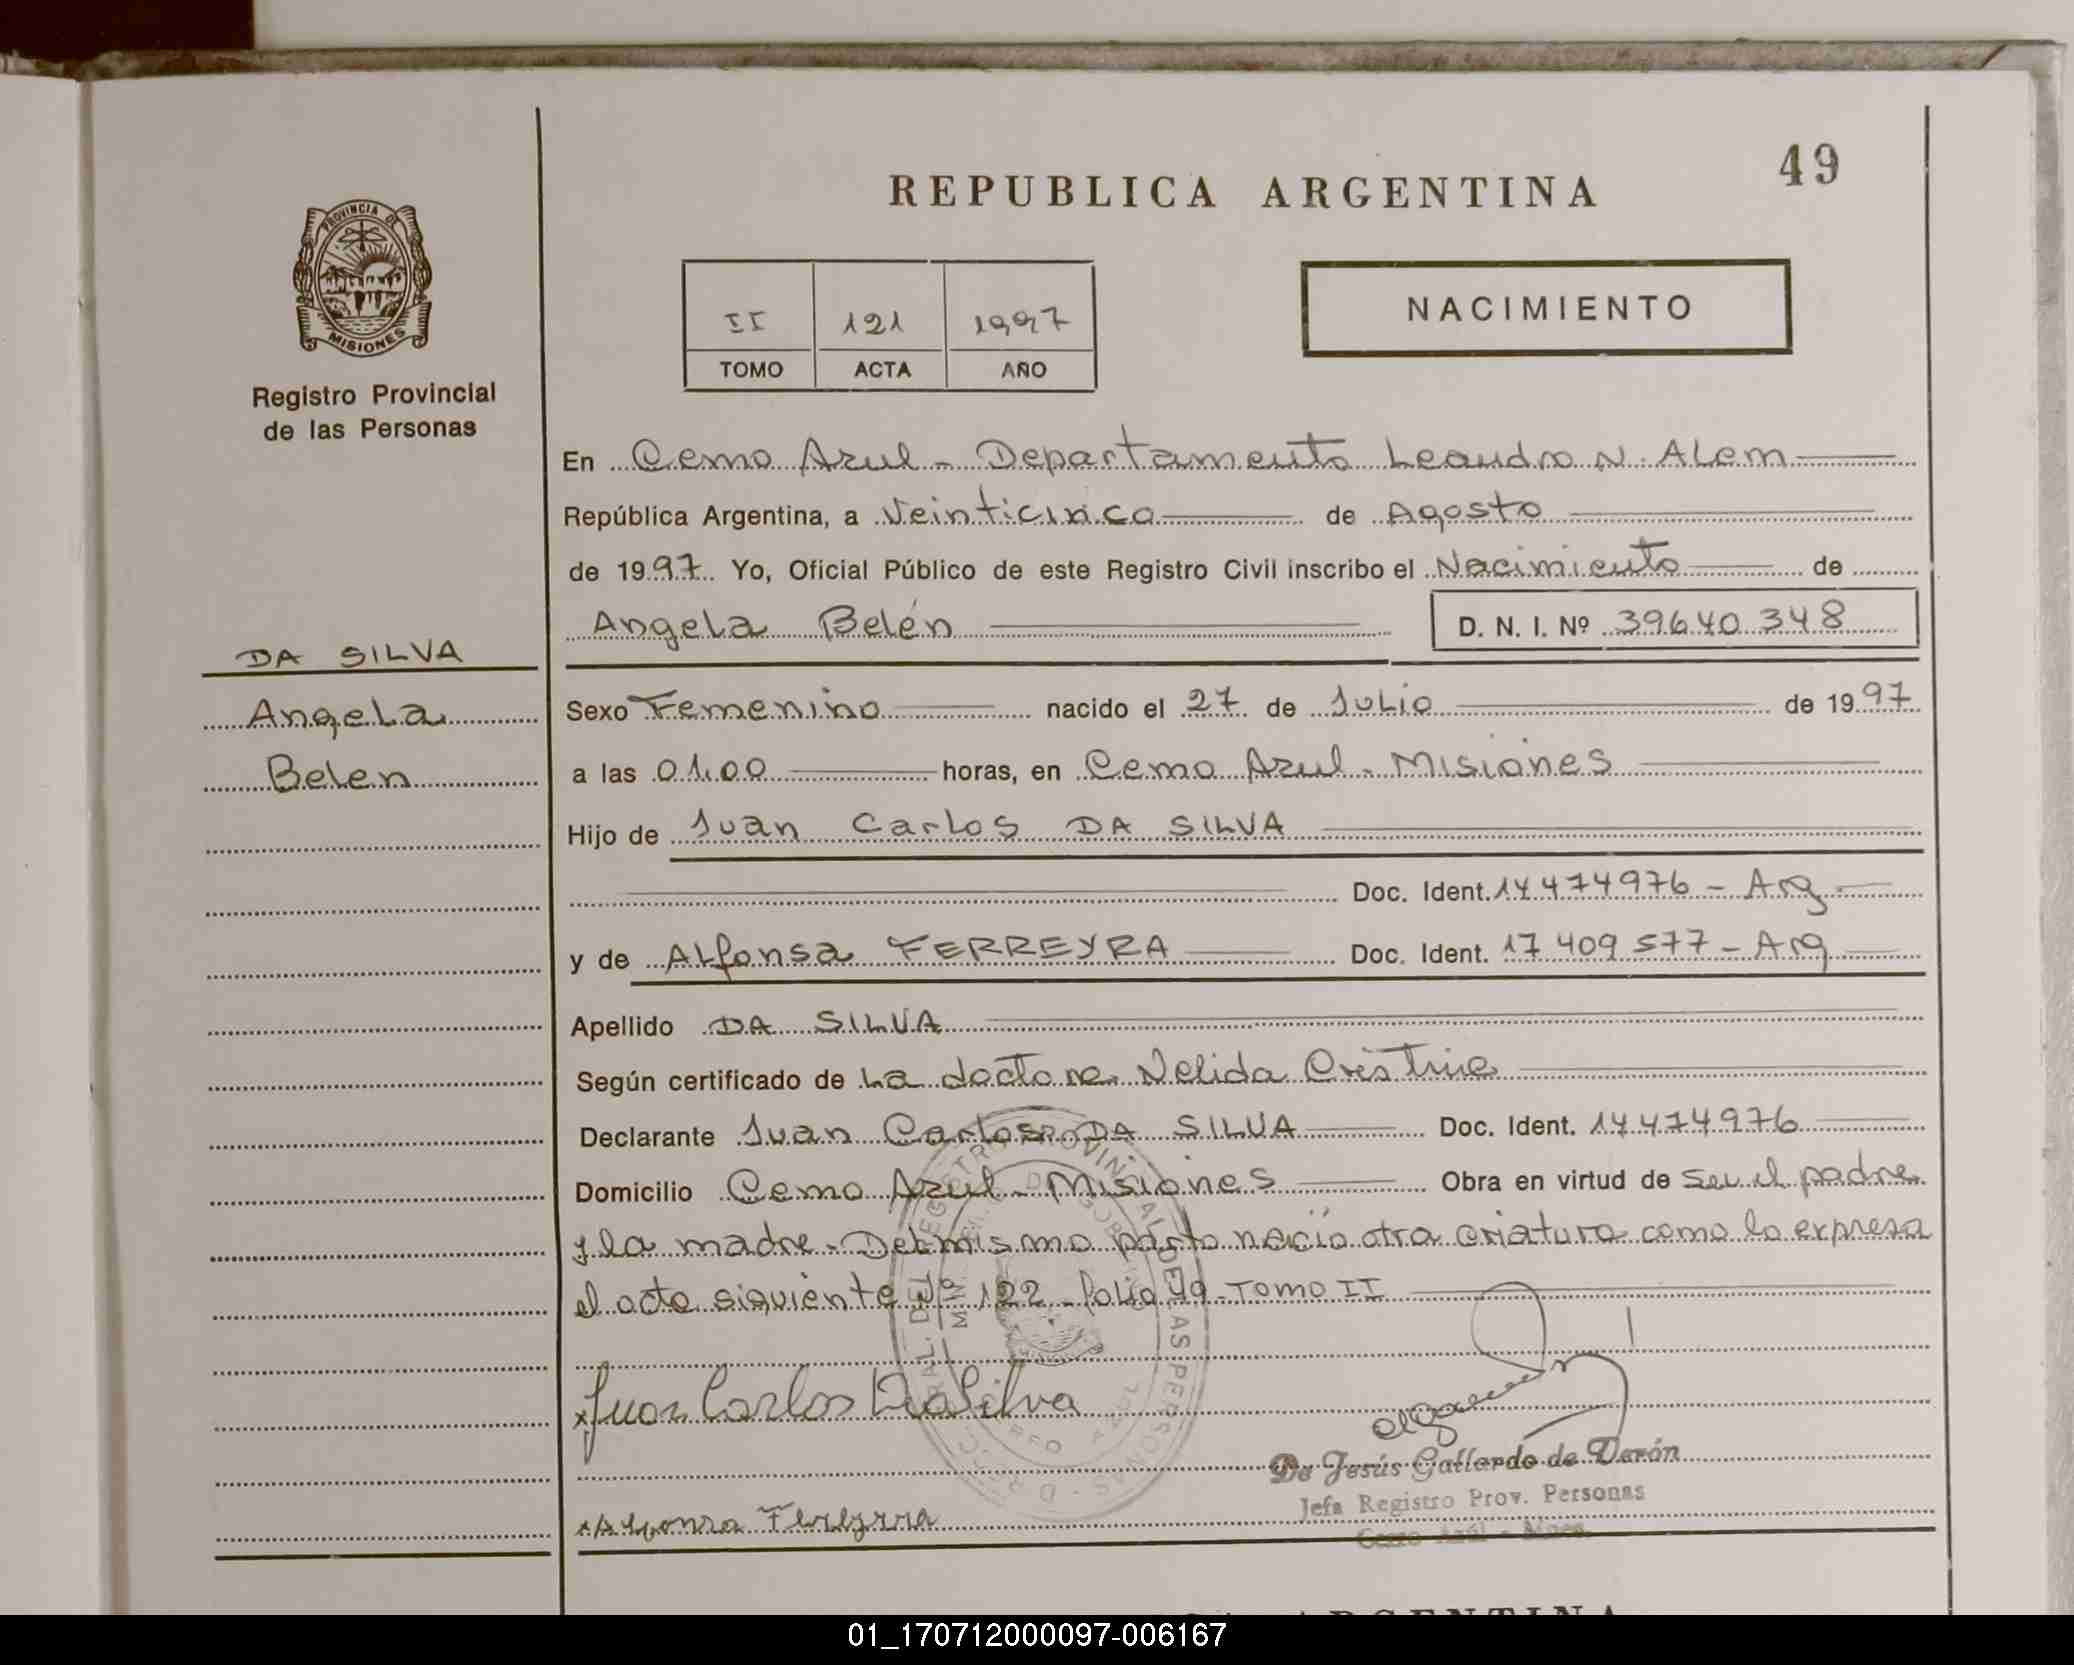 49
REPUBLICA ARGENTINA
PROVINCIA DE
MISIONES
Registro Provincial
de las Personas
II 121 1997
TOMO ACTA AÑO
NACIMIENTO
En Cerro Azul - Departamento Leandro N. Alem
República Argentina, a Veinticinco de Agosto
de 1997 Yo, Oficial Público de este Registro Civil inscribo el Nacimiento de
Angela Belén D. N. I. Nº 39640348
DA SILVA
Angela
Belen
Sexo Femenino nacido el 27 de Julio de 1997
a las 01.00 horas, en Cerro Azul - Misiones
Hijo de Juan Carlos DA SILVA
Doc. Ident. 14474976 - Arg
y de Alfonsa FERREYRA Doc. Ident. 17409577 - Arg
Apellido DA SILVA
Según certificado de La doctora Nelida Cristina
Declarante Juan Carlos DA SILVA Doc. Ident. 14474976
Domicilio Cerro Azul - Misiones Obra en virtud de ser el padre
y la madre - Del mismo parto nació otra criatura como lo expresa
el acta siguiente Nº 122 - folio 49 - Tomo II
Juan Carlos Da Silva
De Jesús Gallardo de Derón
Jefa Registro Prov. Personas
Cerro Azúl - Mnes.
Alfonsa Ferreyra
ARGENTINA
01_170712000097-006167